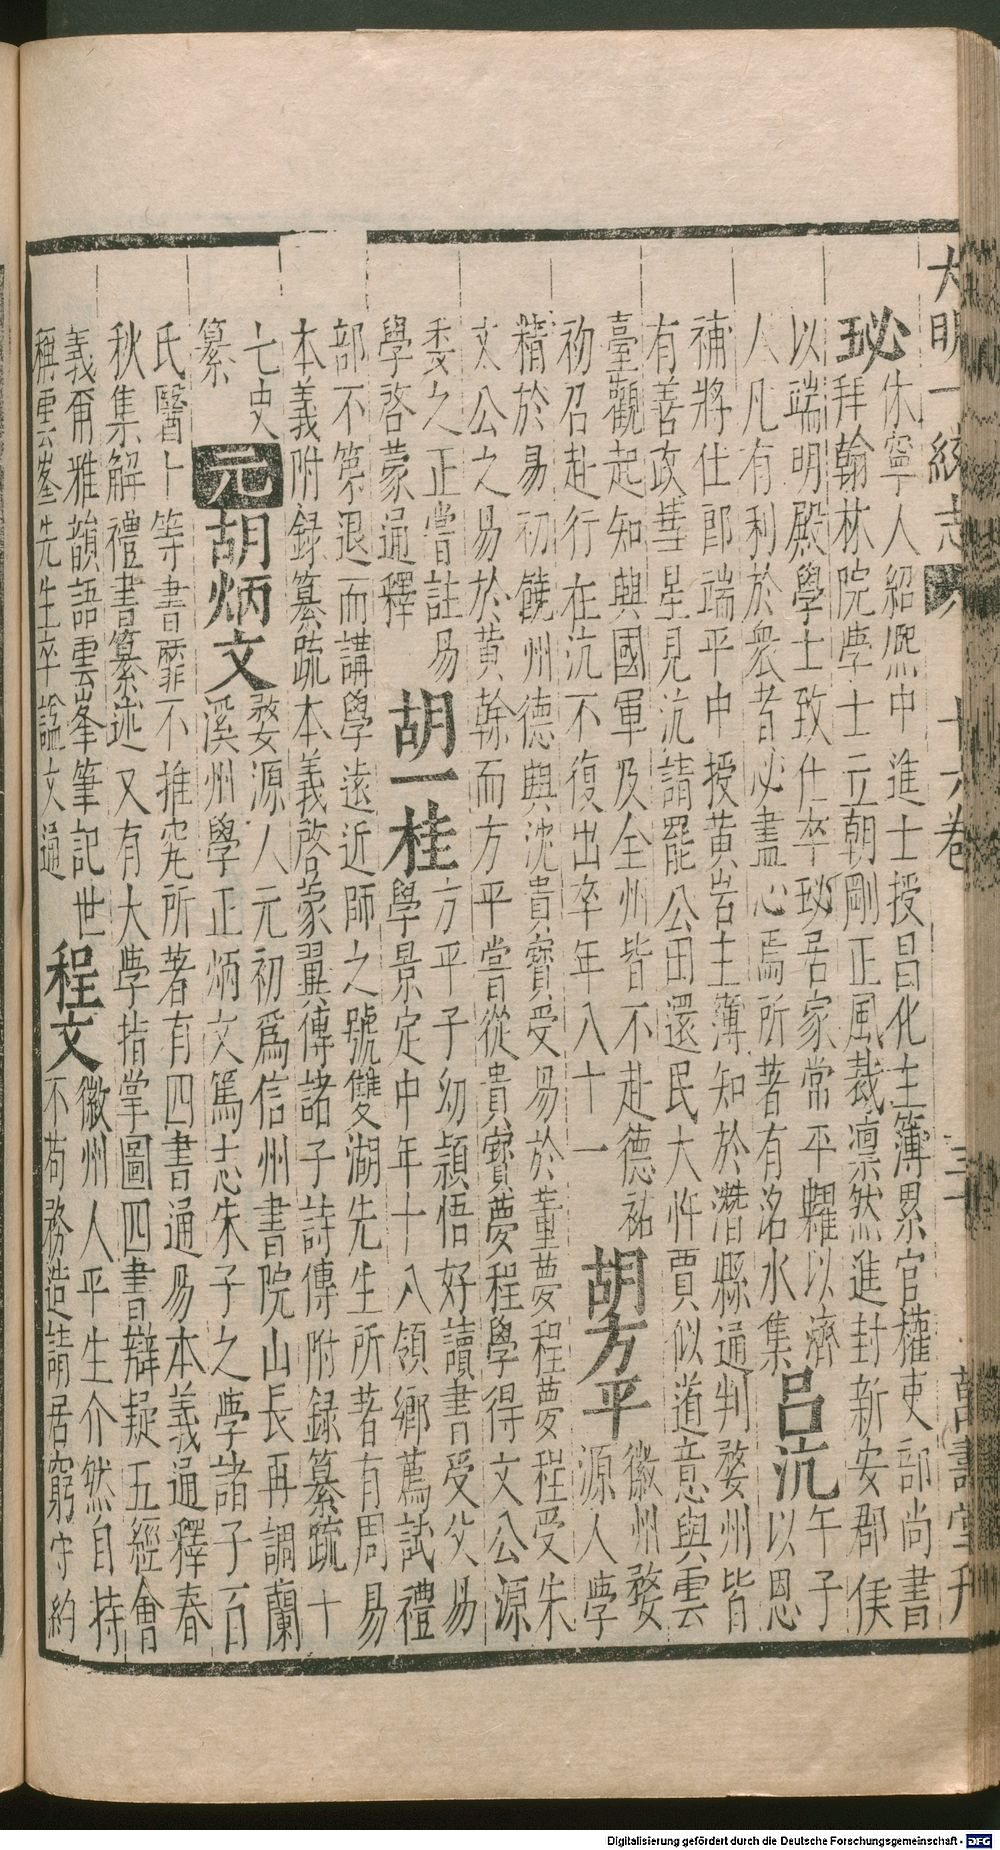 大明一統志 八 十六卷 三十 萬壽堂刊
珌
休寧人紹熈中進士授昌化主簿累官權吏部尚書
拜翰林院學士立朝剛正風裁凛然進封新安郡侯
以端明殿學士致仕卒珌居家常平糶以濟
人凡有利於衆者必盡心焉所著有洺水集
呂沆
午子
以恩
補將仕郎端平中授黄岩主薄知於潛縣通判婺州皆
有善政彗星見沆請罷公田還民大忤賈似道意與雲
臺觀起知興國軍及全州皆不赴德祐
初召赴行在沆不復出卒年八十一
胡方平
徽州婺
源人學
精於易初饒州德興沈貴寶受易於董夢程夢程受朱
文公之易於黄榦而方平嘗從貴寶夢程學得文公源
委之正嘗註易
學啓蒙通釋
胡一桂
方平子幼頴悟好讀書受父易
學景定中年十八領鄉薦試禮
部不第退而講學遠近師之號雙湖先生所著有周易
本義附録纂疏本義啓蒙翼傳諸子詩傳附録纂疏十
七史
纂
元
胡炳文
婺源人元初爲信州書院山長再調蘭
溪州學正炳文篤志朱子之學諸子百
氏醫卜等書靡不推究所著有四書通易本義通釋春
秋集解禮書纂述又有大學指掌圖四書辯疑五經會
義爾雅韻語雲峯筆記世
稱雲峯先生卒諡文通
程文
徽州人平生介然自持
不苟務造請居窮守約
Digitalisierung gefördert durch die Deutsche Forschungsgemeinschaft - DFG